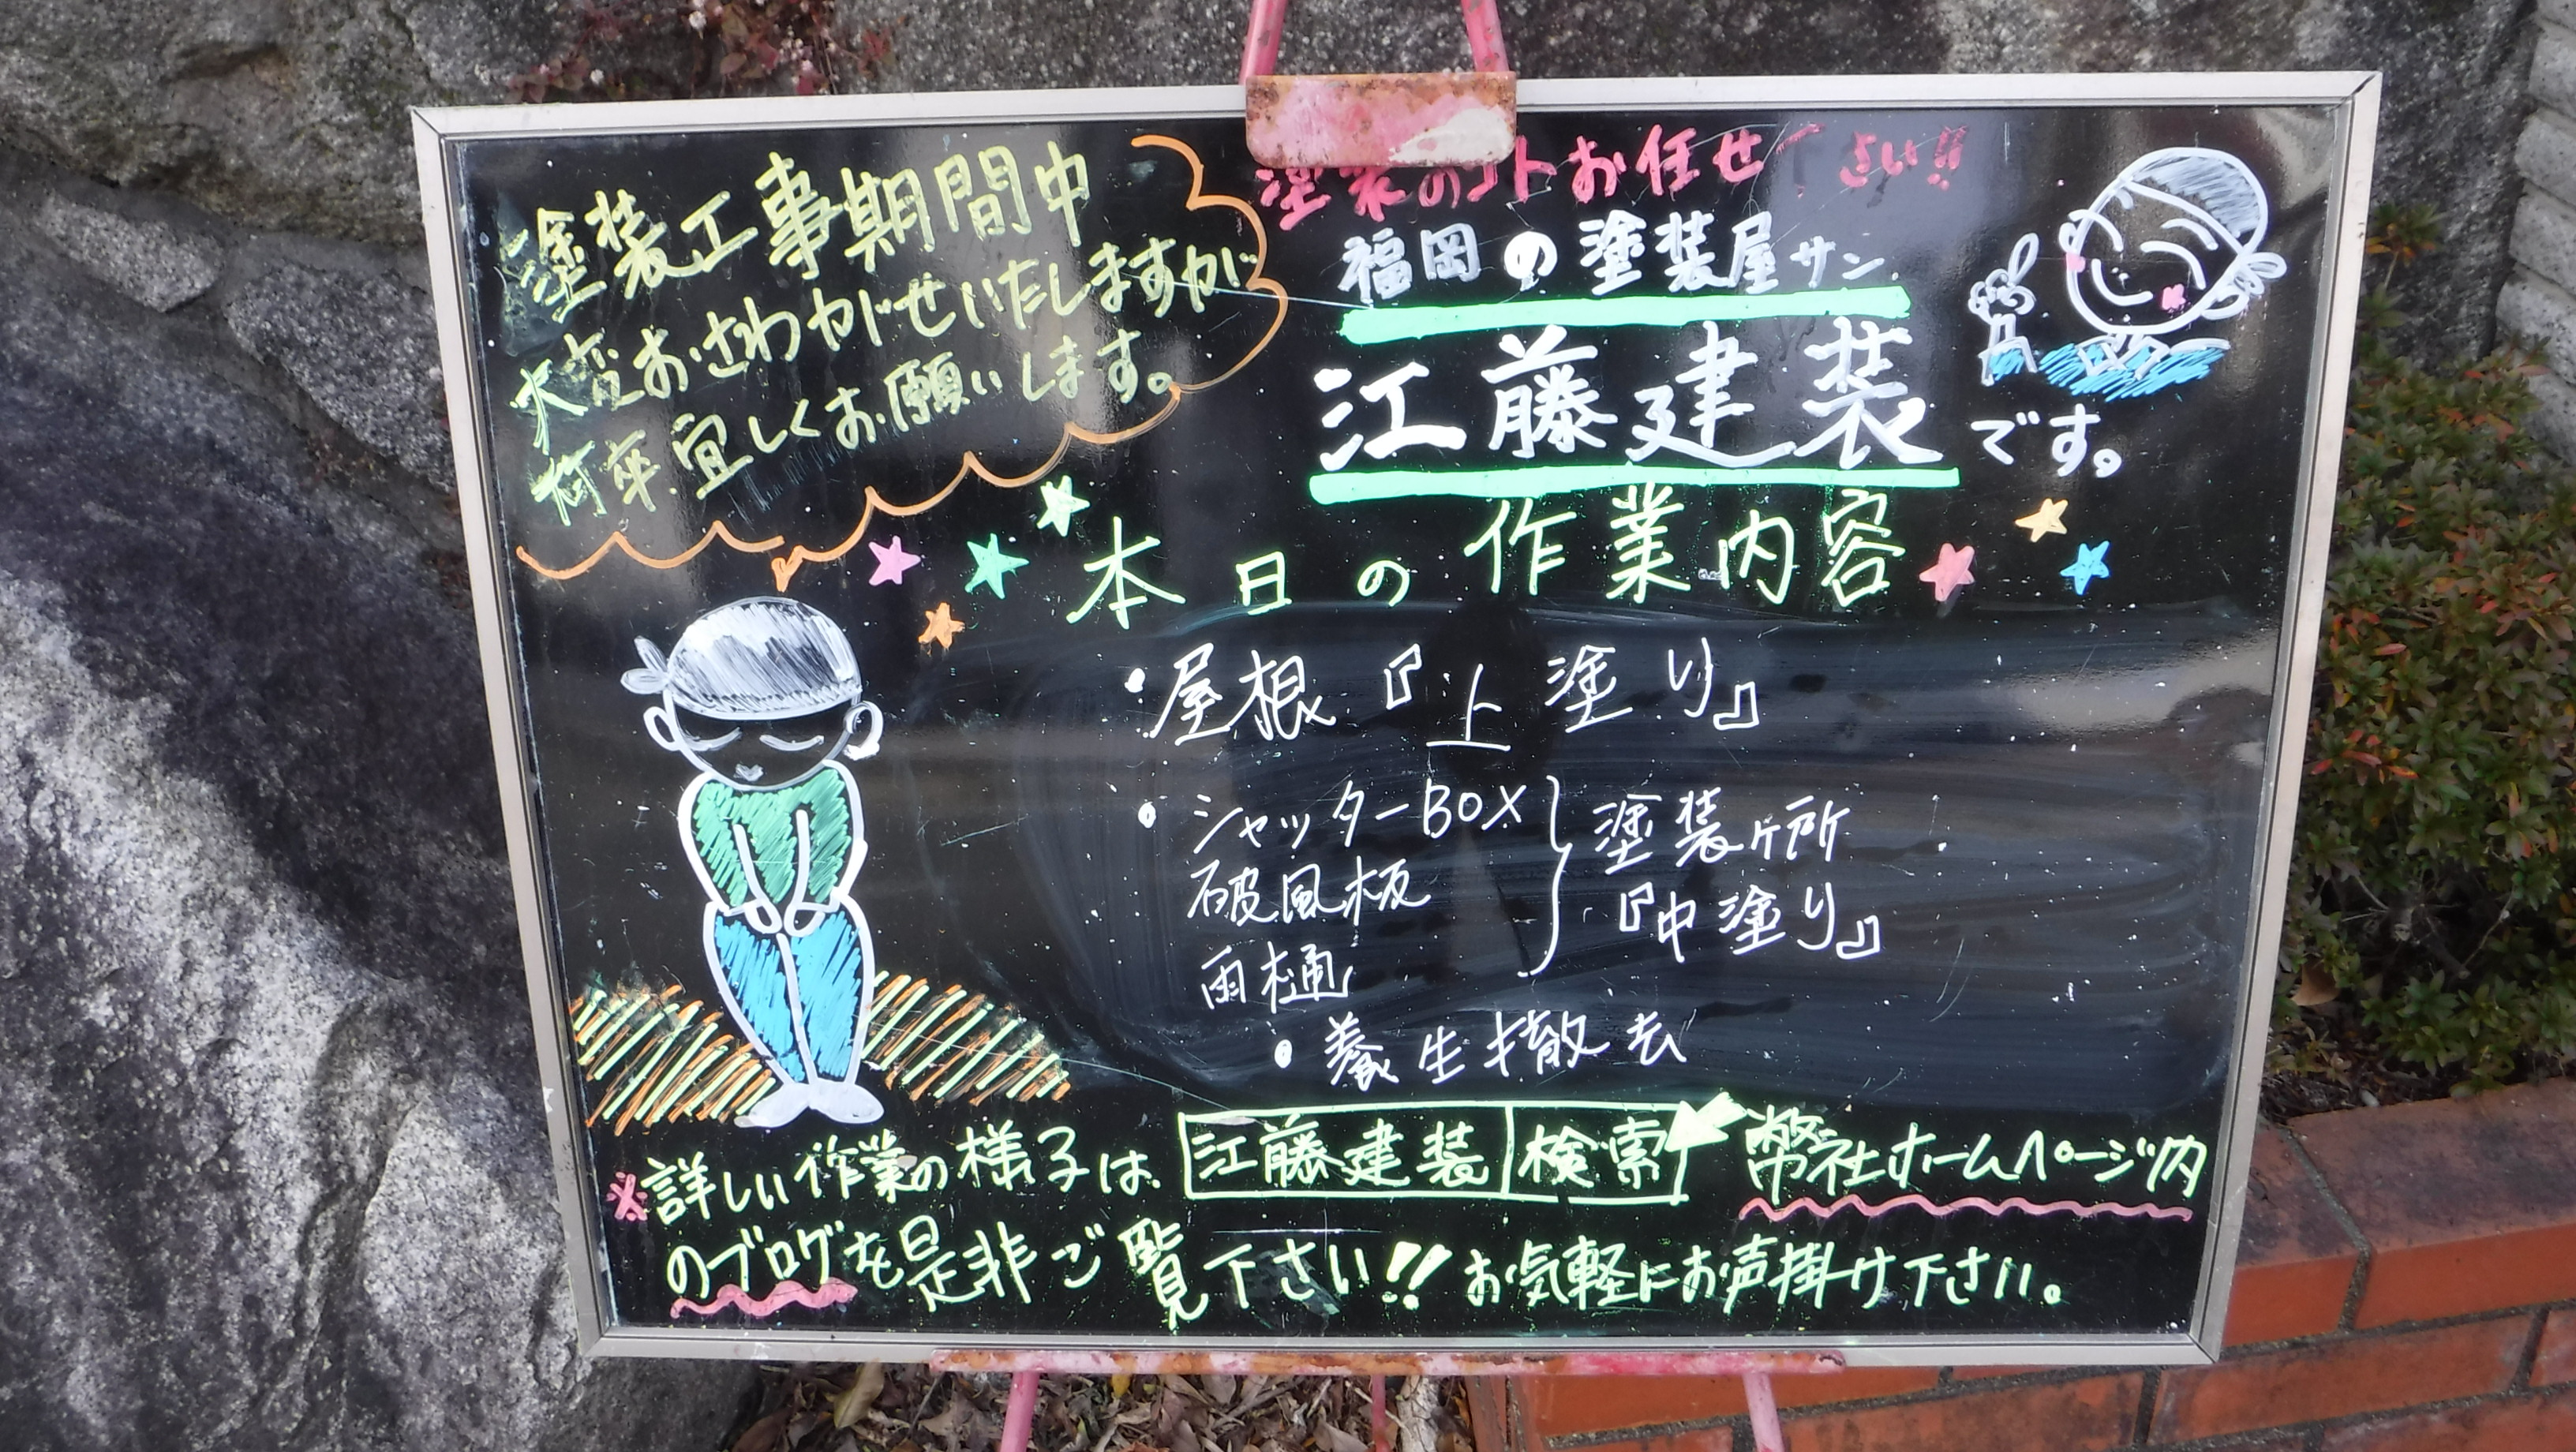 塗装工事期間中
大変おさわがせいたしますが
何卒宜しくお願いします。
塗装のコトお任せ下さい!!
福岡の塗装屋サン
江藤建装です。
本日の作業内容
・屋根『上塗り』
・シャッターBOX
破風板
雨樋
塗装ヶ所
『中塗り』
・養生撤去
※詳しい作業の様子は 江藤建装 検索 弊社ホームページ内
のブログを是非ご覧下さい!! お気軽にお声掛け下さい。